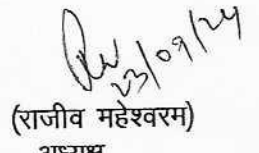 23/09/24
(राजीव महेश्वरम)
अध्यक्ष